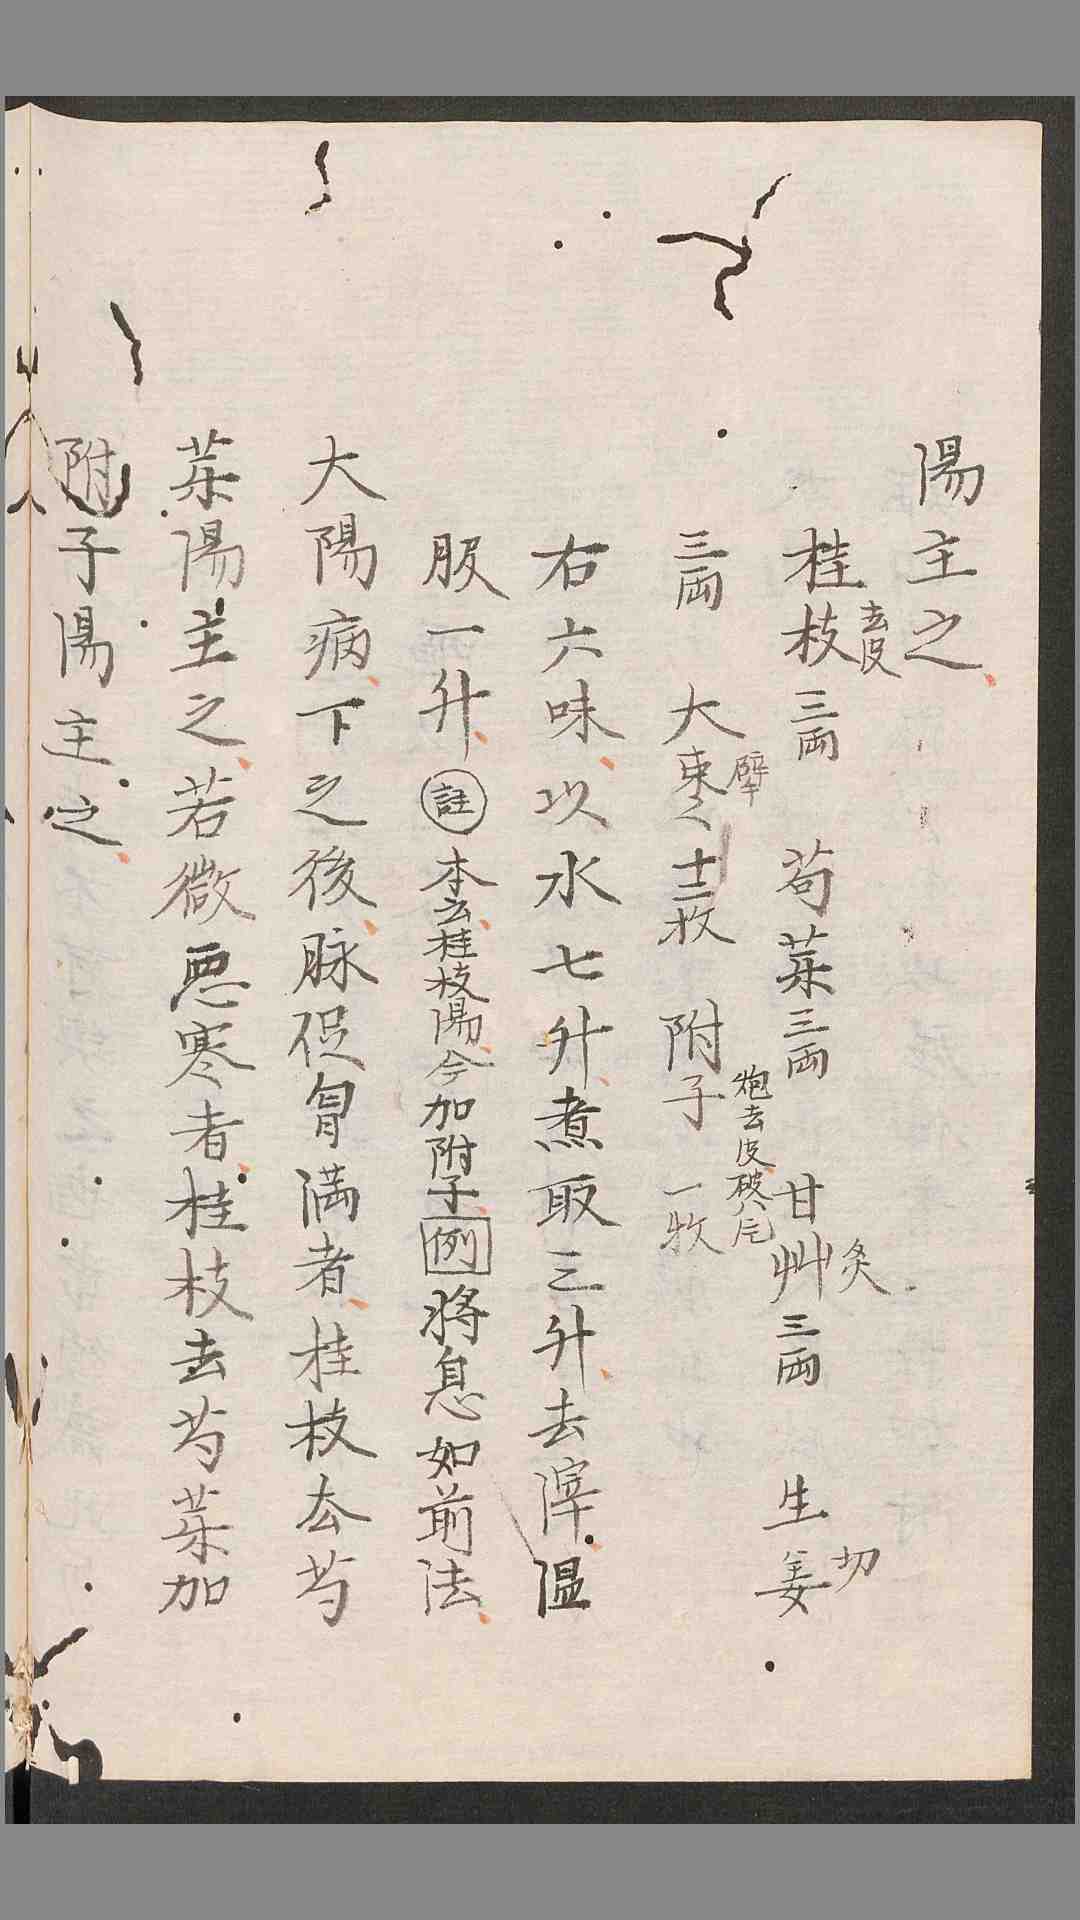 陽主之
桂枝去皮三両　芍薬三両　甘艸炙三両　生姜切
三両　大棗擘十二枚　附子炮去皮破八片一枚
右六味以水七升煮取三升去滓温
服一升註本云桂枝陽今加附子例將息如前法
大陽病下之後脉促胷満者桂枝去芍
薬陽主之若微悪寒者桂枝去芍薬加
附子陽主之